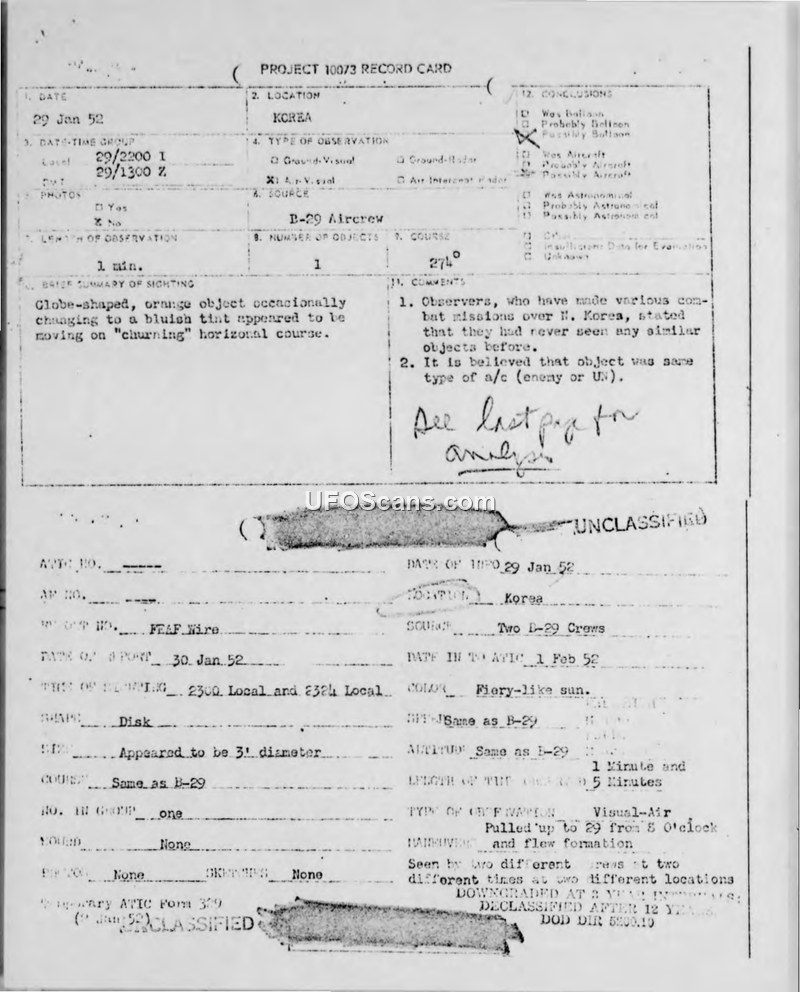 PROJECT 10073 RECORD CARD
1. DATE
29 Jan 52
2. LOCATION
KOREA
12. CONCLUSIONS
Was Balloon
Probably Balloon
Possibly Balloon
Was Aircraft
Probably Aircraft
Possibly Aircraft
Was Astronomical
Probably Astronomical
Possibly Astronomical
Other
Insufficient Data for Evaluation
Unknown
3. DATE-TIME GROUP
Local 29/2200 I
GMT 29/1300 Z
4. TYPE OF OBSERVATION
Ground-Visual
Ground-Radar
X Air-Visual
Air Intercept Radar
5. PHOTOS
Yes
X No
6. SOURCE
B-29 Aircrew
7. LENGTH OF OBSERVATION
1 min.
8. NUMBER OF OBJECTS
1
9. COURSE
274°
10. BRIEF SUMMARY OF SIGHTING
Globe-shaped, orange object occacionally
changing to a bluish tint appeared to be
moving on "churning" horizonal course.
11. COMMENTS
1. Observers, who have made various com-
bat missions over N. Korea, stated
that they had never seen any similar
objects before.
2. It is believed that object was same
type of a/c (enemy or UN).
See last page for
analysis
UFOScans.com
UNCLASSIFIED
ATIC NO. -----
DATE OF INFO 29 Jan 52
AF NO. ----
LOCATION Korea
REPORT NO. FEAF Wire
SOURCE Two B-29 Crews
DATE OF REPORT 30 Jan 52
DATE IN TO ATIC 1 Feb 52
TIME OF SIGHTING 2300 Local and 2324 Local
COLOR Fiery-like sun.
SHAPE Disk
SPEED Same as B-29
SIZE Appeared to be 3' diameter
ALTITUDE Same as B-29
COURSE Same as B-29
1 Minute and
LENGTH OF TIME 5 Minutes
NO. IN GROUP one
TYPE OF OBSERVATION Visual-Air
SOUND None
Pulled up to 29 from 8 O'clock
MANEUVERS and flew formation
PHOTOS None SKETCHES None
Seen by two different crews at two
different times at two different locations
Temporary ATIC Form 329
(2 Jan 52)
UNCLASSIFIED
DOWNGRADED AT 3 YEAR INTERVALS;
DECLASSIFIED AFTER 12 YEARS.
DOD DIR 5200.10